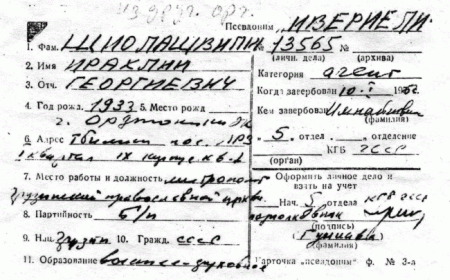 из друг. орг.
Псевдоним „ИВЕРИЕЛИ“
1. Фам. ШИОЛАШВИЛИ № 13565 №
(личн. дела) (архива)
2. Имя ИРАКЛИЙ
Категория агент
3. Отч. ГЕОРГИЕВИЧ
Когда завербован 10-I 196
4. Год рожд. 1933 5. Место рожд
Кем завербован
г. Орджоникидзе
(фамилия)
6. Адрес Тбилиси пос.
5 отдел отделение
I квартал IX корпус кв-
КГБ ГССР
(орган)
7. Место работы и должность митрополит
грузинской православной церкви
Оформить личное дело и
взять на учет
Нач. 5 отдела КГБ ГССР
8. Партийность б/п
подполковник
(подпись)
9. Нац. грузин 10. Гражд. СССР
(фамилия)
11. Образование высшее-духовное
Карточка „псевдоним“ ф. № 3-а